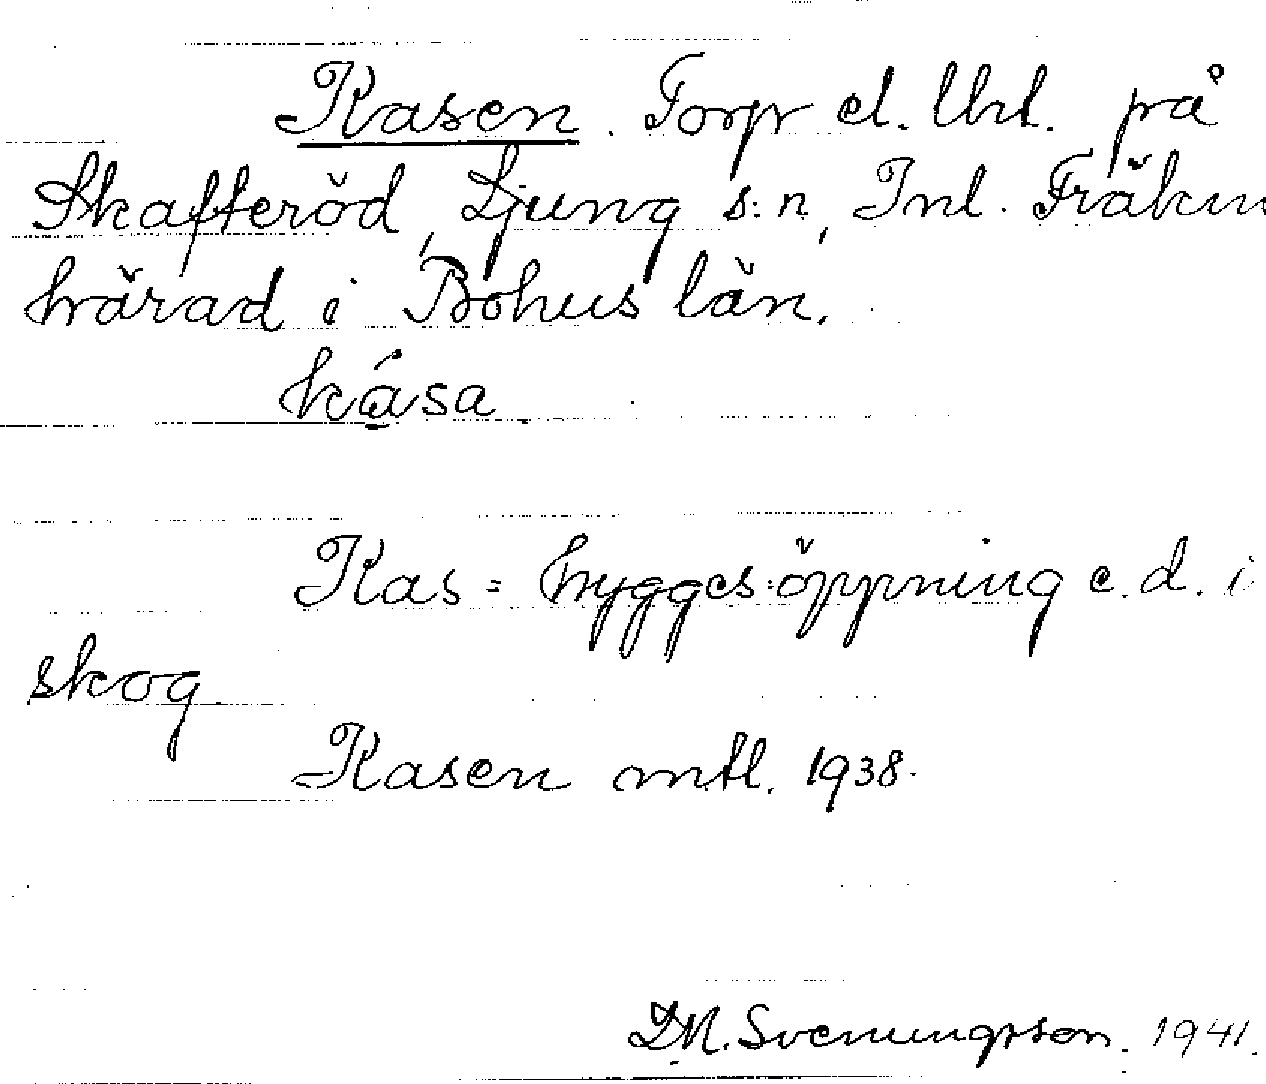 Kasen. Torp el. lht. på
Skafteröd, Ljung s:n, Inl. Fräkne
härad i Bohus län.
kása
Kas = hygges-öppning e.d. i
skog
Kasen mtl. 1938.
D.M. Svenungsson. 1941.